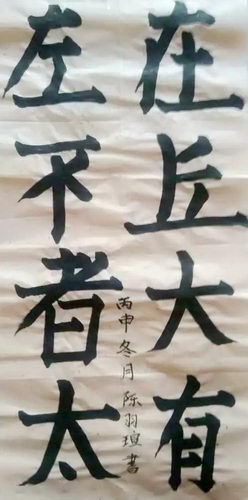 在丘大有
左不者太
丙申冬月陈羽瑄書